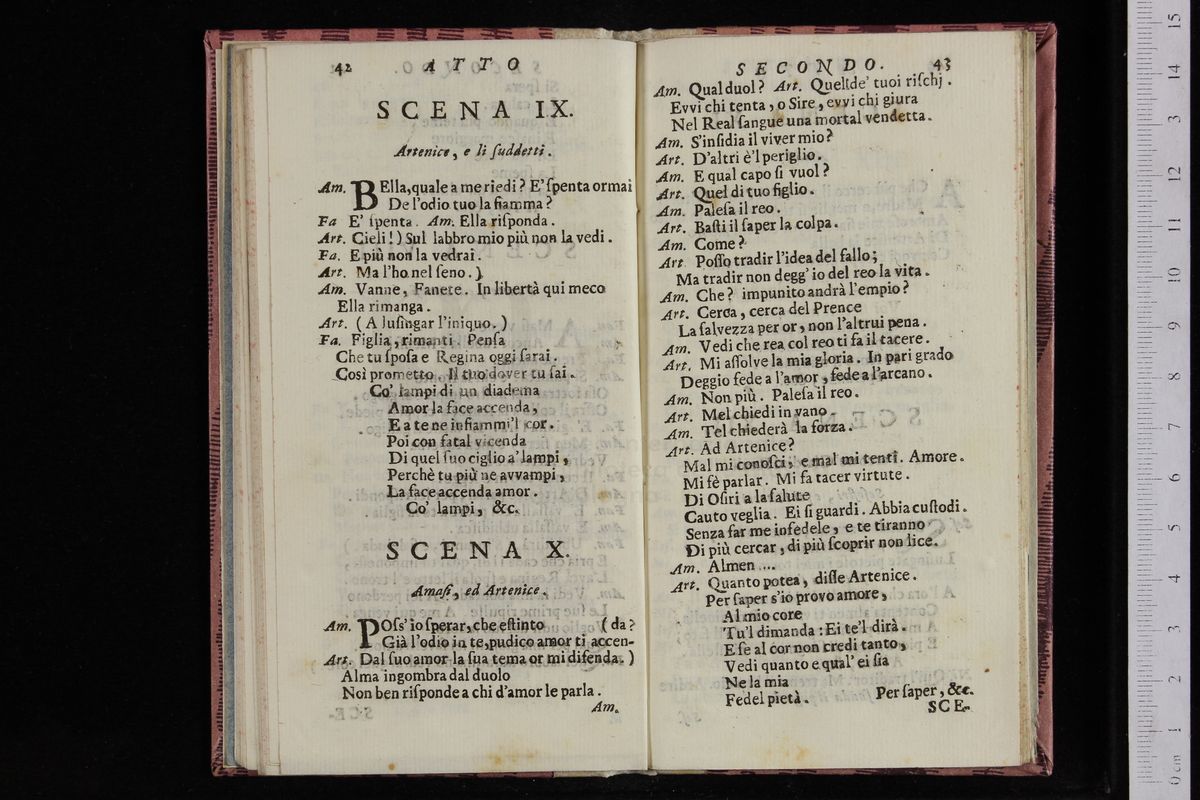 42 ATTO
SCENA IX.
Artenice, e li ſuddetti.
Am. BElla, quale a me riedi? E' ſpenta ormai
De l'odio tuo la fiamma?
Fa E' ſpenta. Am. Ella riſponda.
Art. Cieli!) Sul labbro mio più non la vedi.
Fa. E più non la vedrai.
Art. Ma l'ho nel ſeno.)
Am. Vanne, Fanete. In libertà qui meco
Ella rimanga.
Art. (A luſingar l'iniquo.)
Fa. Figlia, rimanti. Penſa
Che tu ſpoſa e Regina oggi ſarai.
Così prometto. Il tuo dover tu ſai.
Co' lampi di un diadema
Amor la face accenda,
E a te ne infiammi'l cor.
Poi con fatal vicenda
Di quel ſuo ciglio a' lampi,
Perchè tu più ne avvampi,
La face accenda amor.
Co' lampi, &c.
SCENA X.
Amaſi, ed Artenice.
Am. POſs' io ſperar, che eſtinto (da?
Già l'odio in te, pudico amor ti accen-
Art. Dal ſuo amor la ſua tema or mi difenda.)
Alma ingombra dal duolo
Non ben riſponde a chi d'amor le parla.
Am.
SECONDO. 43
Am. Qual duol? Art. Quel de' tuoi riſchj.
Evvi chi tenta, o Sire, evvi chi giura
Nel Real ſangue una mortal vendetta.
Am. S'inſidia il viver mio?
Art. D'altri è'l periglio.
Am. E qual capo ſi vuol?
Art. Quel di tuo figlio.
Am. Paleſa il reo.
Art. Baſti il ſaper la colpa.
Am. Come?
Art Poſſo tradir l'idea del fallo;
Ma tradir non degg' io del reo la vita.
Am. Che? impunito andrà l'empio?
Art. Cerca, cerca del Prence
La ſalvezza per or, non l'altrui pena.
Am. Vedi che rea col reo ti fa il tacere.
Art. Mi aſſolve la mia gloria. In pari grado
Deggio fede a l'amor, fede a l'arcano.
Am. Non più. Paleſa il reo.
Art. Mel chiedi in vano.
Am. Tel chiederà la forza.
Art. Ad Artenice?
Mal mi conoſci, e mal mi tenti. Amore.
Mi fè parlar. Mi fa tacer virtute.
Di Oſiri a la ſalute
Cauto veglia. Ei ſi guardi. Abbia cuſtodi.
Senza far me infedele, e te tiranno
Di più cercar, di più ſcoprir non lice.
Am. Almen ....
Art. Quanto potea, diſſe Artenice.
Per ſaper s'io provo amore,
Al mio core
Tu'l dimanda: Ei te'l dirà.
E ſe al cor non credi tanto,
Vedi quanto e qual' ei ſia
Ne la mia
Fedel pietà. Per ſaper, &c.
SCE-